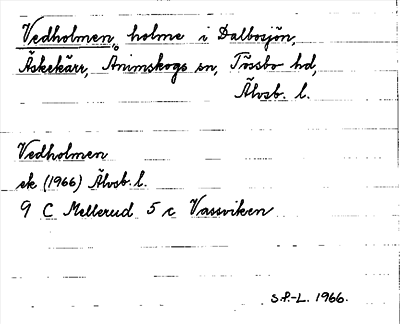 Vedholmen, holme i Dalbosjön,
Åskekärr, Ånimskogs sn, Tössbo hd,
Älvsb. l.
Vedholmen
ek (1966) Älvsb. l.
9 C Mellerud 5 c Vassviken
S.P.-L. 1966.